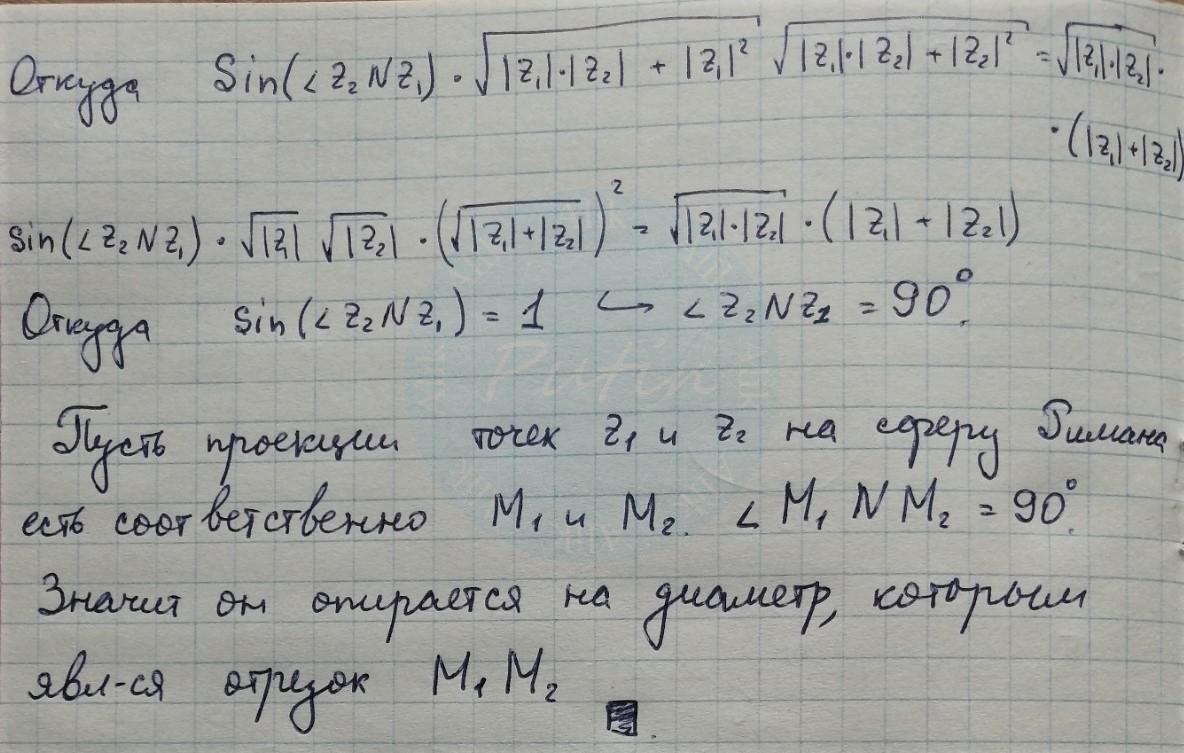 Откуда Sin(∠Z₂NZ₁) · √(|Z₁|·|Z₂| + |Z₁|²) √(|Z₁|·|Z₂| + |Z₂|²) = √(|Z₁|·|Z₂|) ·
· (|Z₁|+|Z₂|)
sin(∠Z₂NZ₁) · √|Z₁| √|Z₂| · (√(|Z₁|+|Z₂|))² = √(|Z₁|·|Z₂|) · (|Z₁| + |Z₂|)
Откуда sin(∠Z₂NZ₁) = 1 ↪ ∠Z₂NZ₁ = 90°.
Putin
Пусть проекции точек Z₁ и Z₂ на сферу Римана
есть соответственно M₁ и M₂. ∠M₁NM₂ = 90°.
Значит он опирается на диаметр, которым
явл-ся отрезок M₁M₂